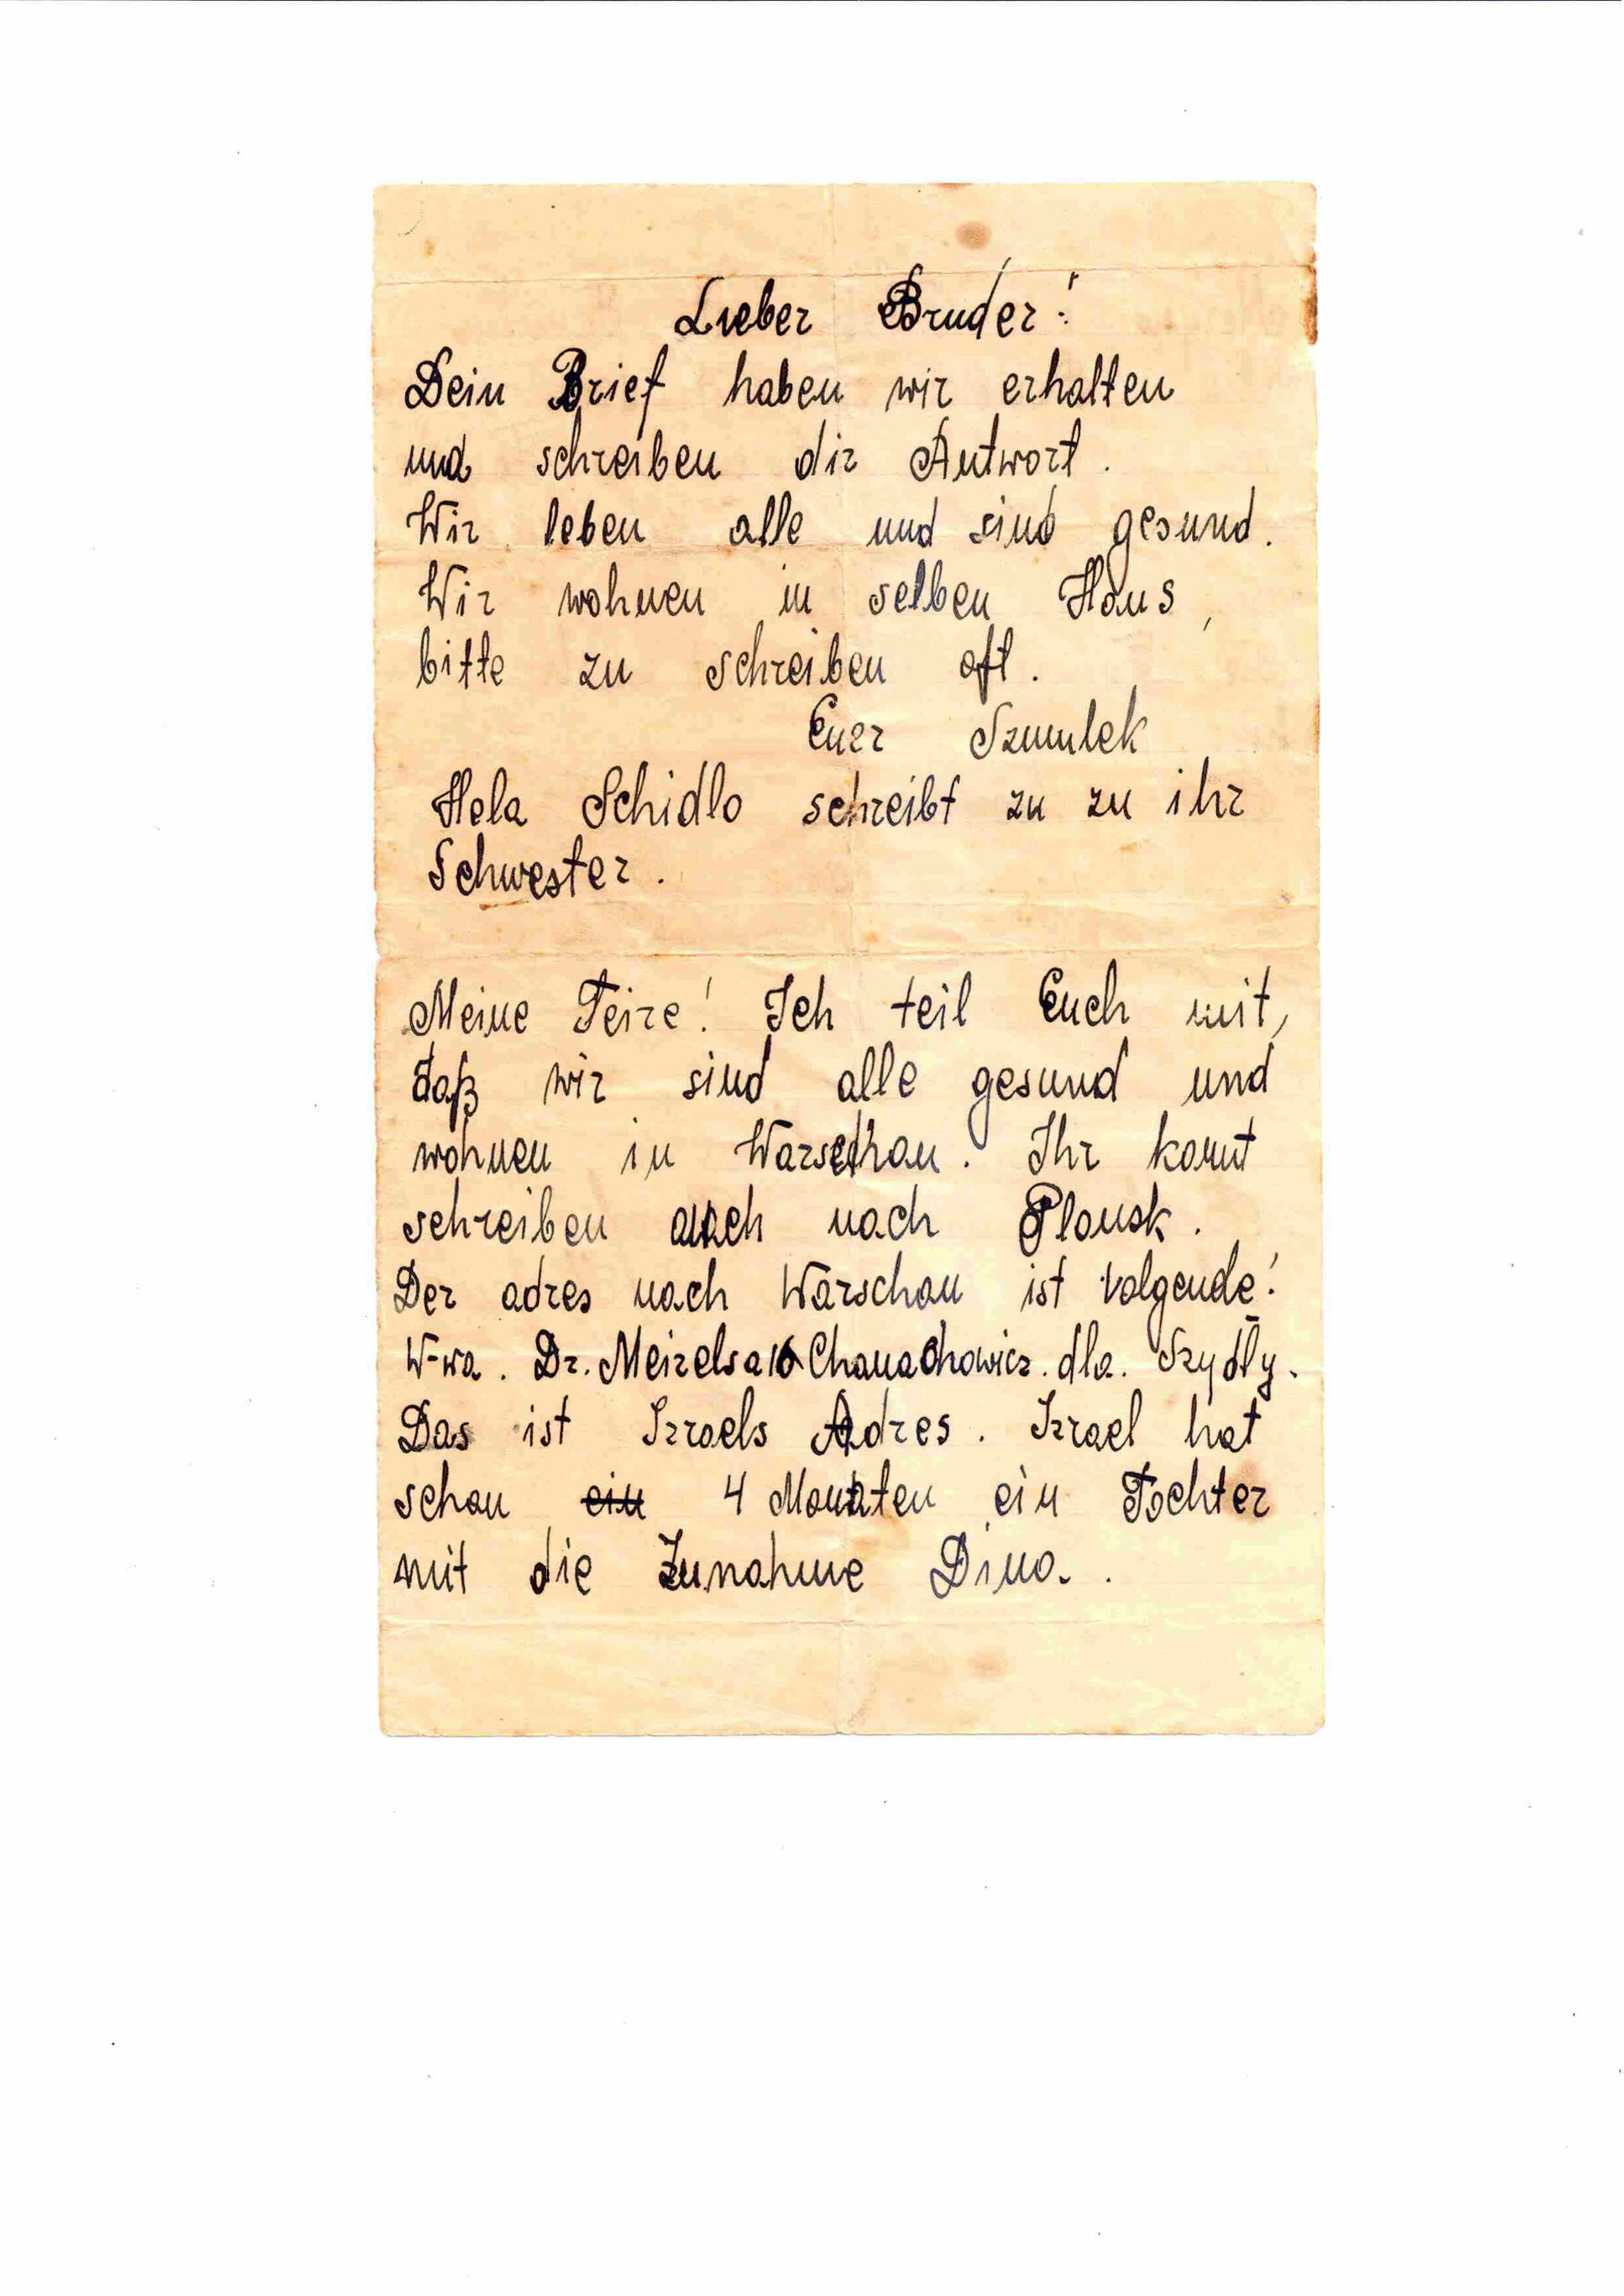 Lieber Bruder!
Dein Brief haben wir erhalten
und schreiben dir Antwort.
Wir leben alle und sind gesund.
Wir wohnen in selben Haus,
bitte zu schreiben oft.
Euer Szmulek
Hela Schidlo schreibt zu zu ihr
Schwester.
Meine Teire! Ich teil Euch mit,
daß wir sind alle gesund und
wohnen in Warschau. Ihr komt
schreiben auch nach Plonsk.
Der adres nach Warschau ist volgende!
W-wa. Dr. Meizelsa 16 Chanachowicz. dla. Szydly.
Das ist Izraels Adres. Izrael hat
schon ein 4 Monaten ein Tochter
mit die Zunahme Dina.